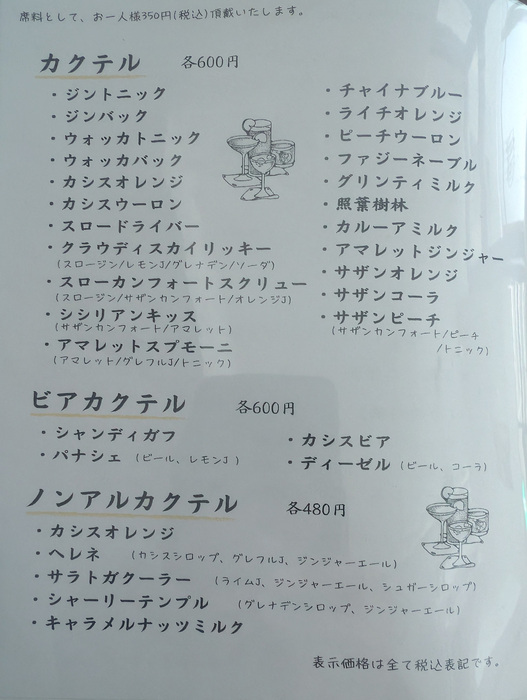 席料として、お一人様350円(税込)頂戴いたします。
カクテル 各600円
・ジントニック
・ジンバック
・ウォッカトニック
・ウォッカバック
・カシスオレンジ
・カシスウーロン
・スロードライバー
・クラウディスカイリッキー
(スロージン/レモンJ/グレナデン/ソーダ)
・スローカンフォートスクリュー
(スロージン/サザンカンフォート/オレンジJ)
・シシリアンキッス
(サザンカンフォート/アマレット)
・アマレットスプモーニ
(アマレット/グレフルJ/トニック)
・チャイナブルー
・ライチオレンジ
・ピーチウーロン
・ファジーネーブル
・グリンティミルク
・照葉樹林
・カルーアミルク
・アマレットジンジャー
・サザンオレンジ
・サザンコーラ
・サザンピーチ
(サザンカンフォート/ピーチ
/トニック)
ビアカクテル 各600円
・シャンディガフ
・パナシェ (ビール、レモンJ )
・カシスビア
・ディーゼル (ビール、コーラ)
ノンアルカクテル 各480円
・カシスオレンジ
・ヘレネ (カシスシロップ、グレフルJ、ジンジャーエール)
・サラトガクーラー (ライムJ、ジンジャーエール、シュガーシロップ)
・シャーリーテンプル (グレナデンシロップ、ジンジャーエール)
・キャラメルナッツミルク
表示価格は全て税込表記です。